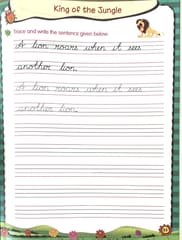 King of the Jungle
trace and write the sentence given below
A lion roars when it sees
another lion.
A lion roars when it sees
another lion.